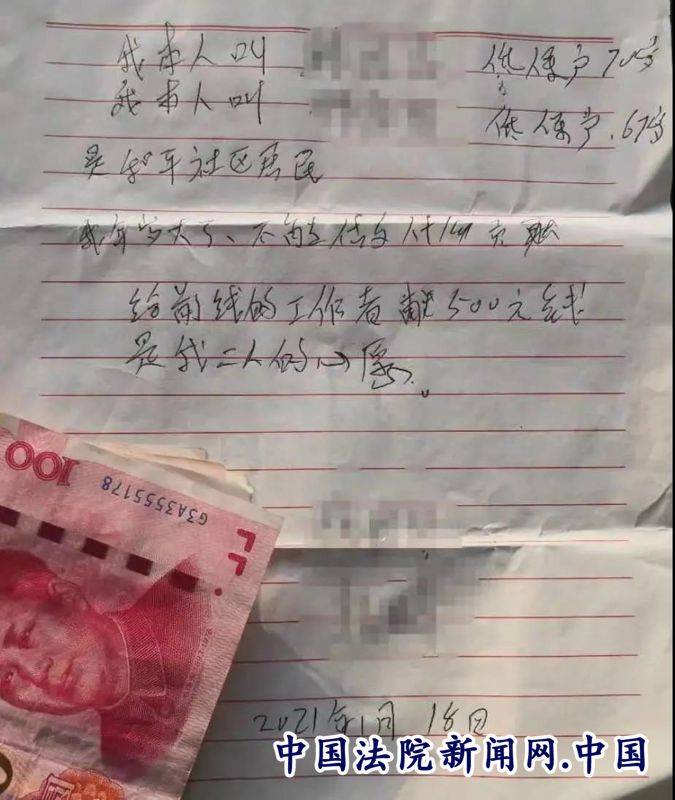 我本人叫 低保户70岁
我本人叫 低保户.67岁
是和平社区居民
我年岁大了、不能做什么贡献
给前线的工作者献500元钱
是我二人的心愿。
2021年1月18日
100
G3A3555178
中国法院新闻网.中国